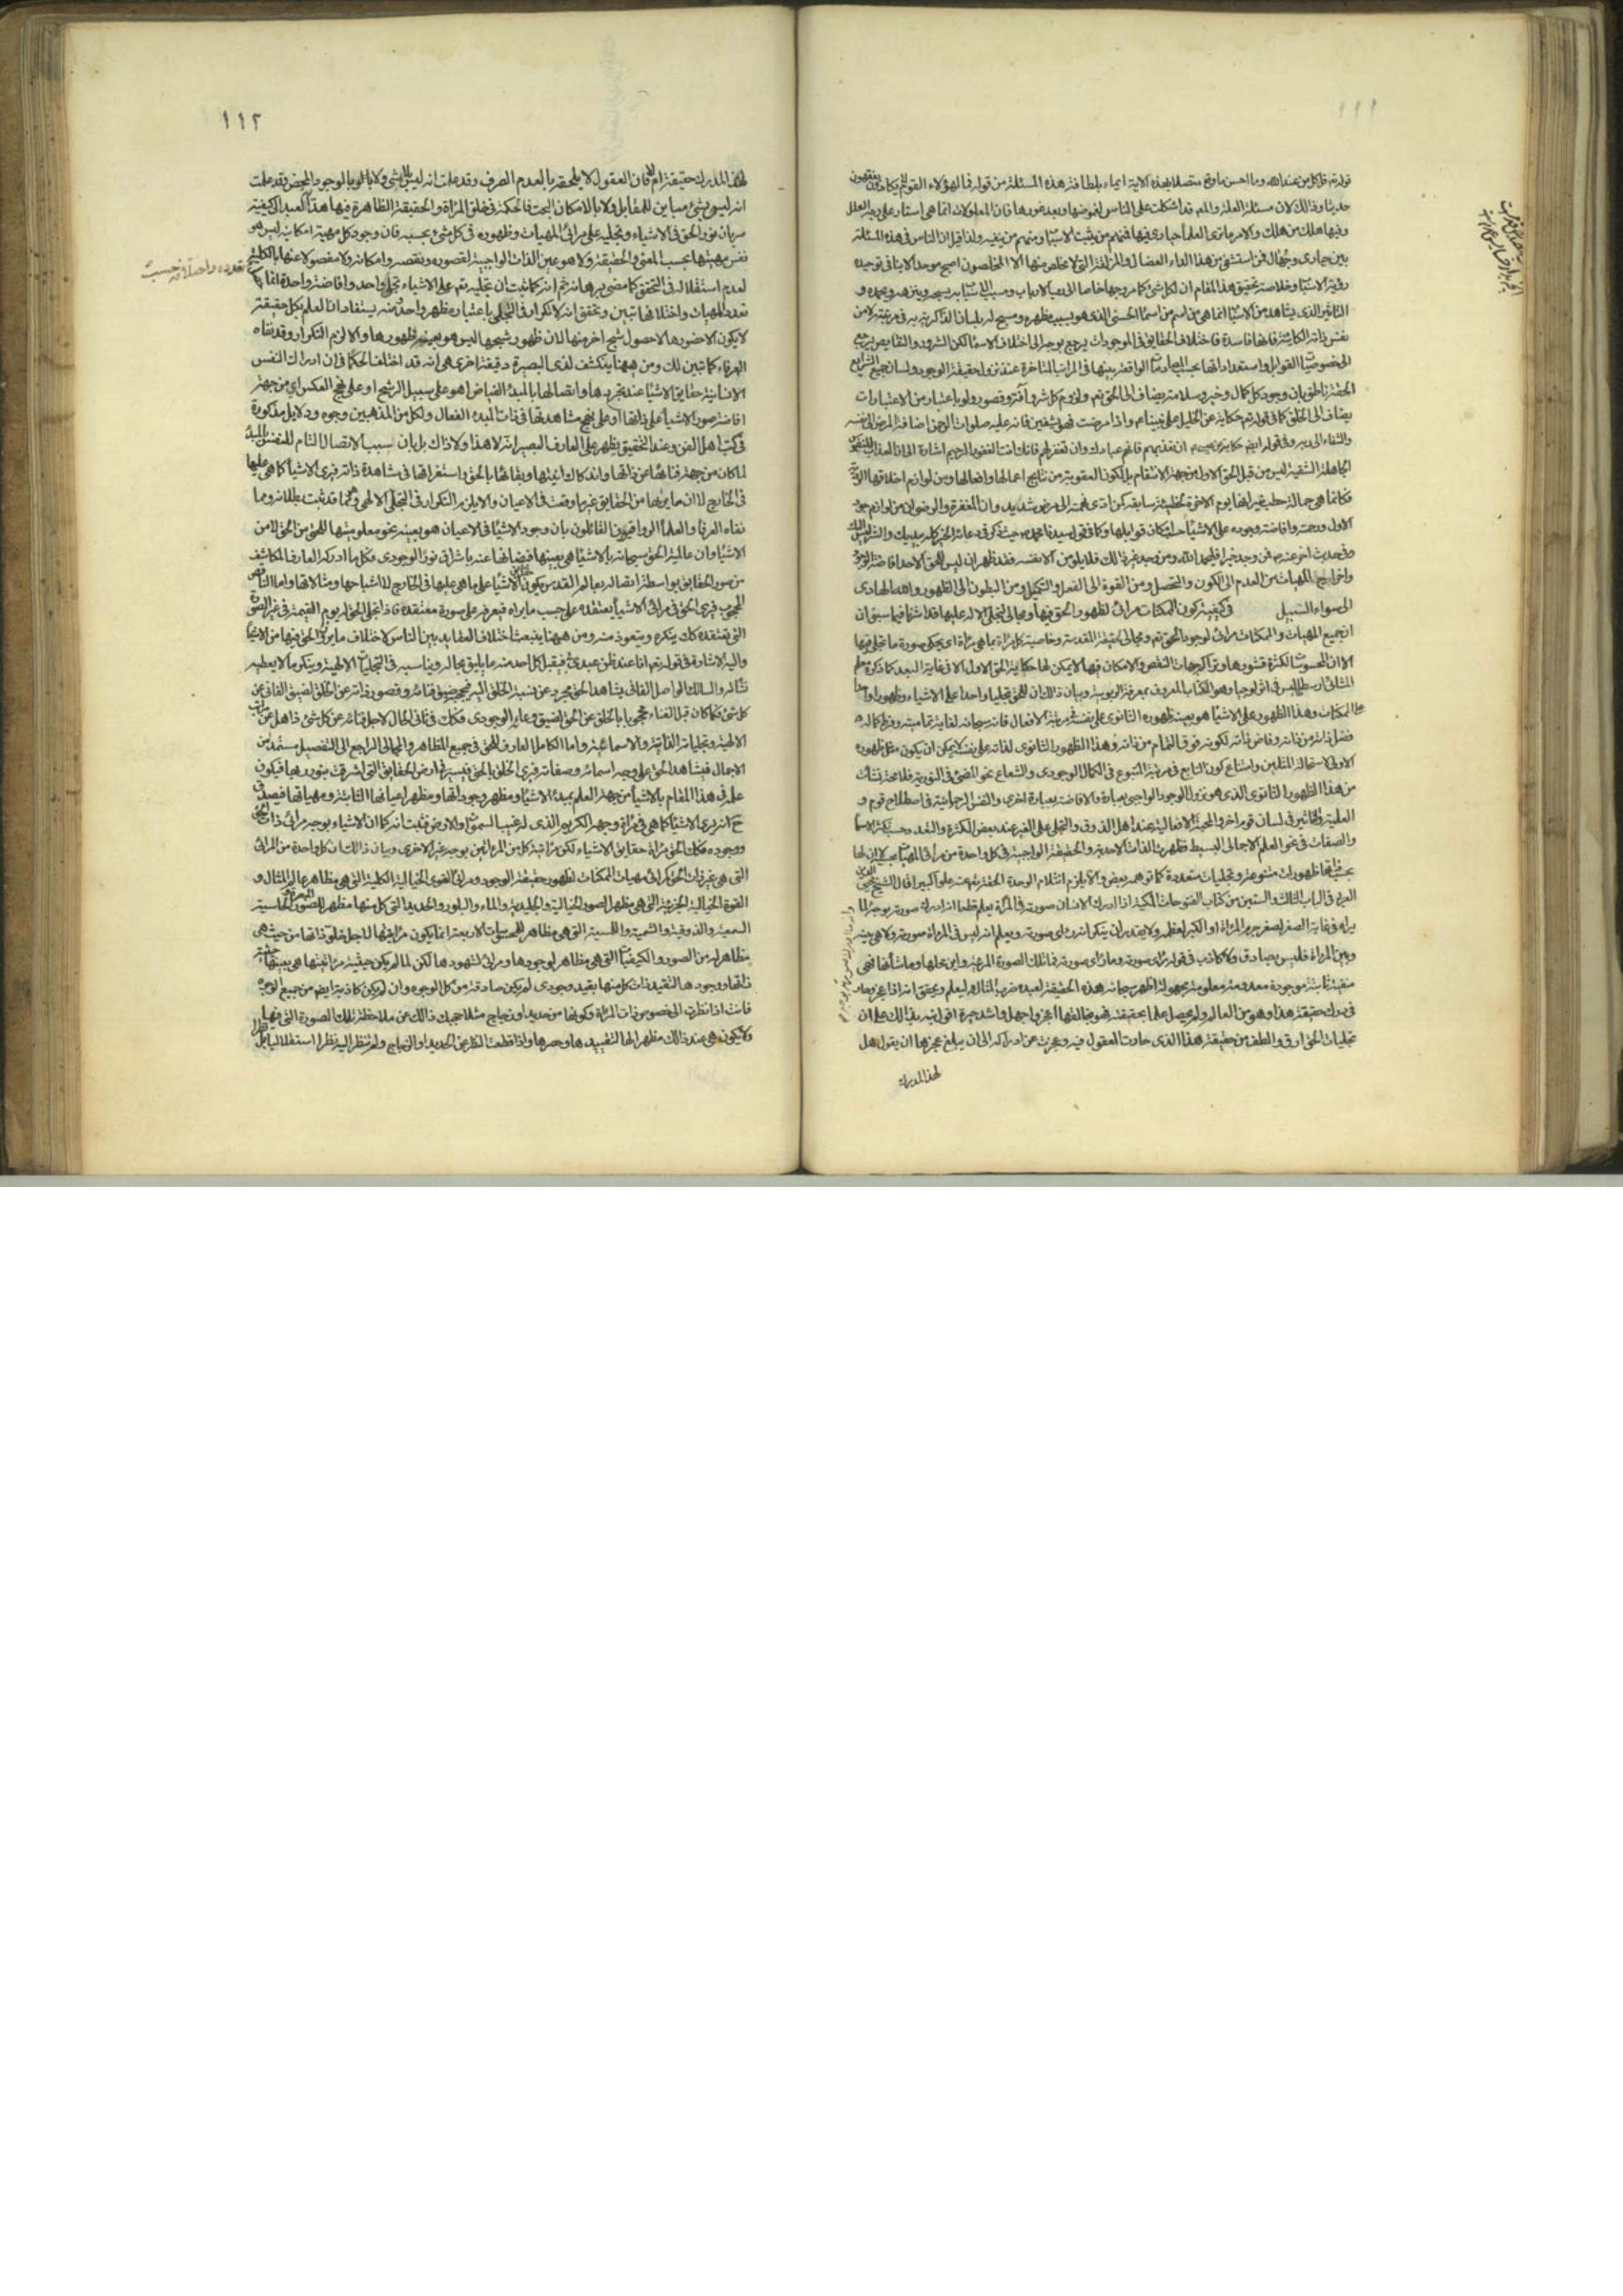 ١١١
قوله تع قل كل من عند الله وما احسن ما وقع متصلا بهذه الاية ايماء بلطافة هذه المسئلة من قوله فما لهؤلاء القوم لا يكادون يفقهون
حديثا وذلك لان مسئلة العلة والمع قد اشكلت على الناس لغموضها وبعد غورها فان المعلولات انما هي استار على وجه العلل
وفيها هلك من هلك والامر ما ترى العلماء حيارى فيها فمنهم من يثبت الاسباب ومنهم من ينفيه ولذا قيل ان الناس في هذه المسئلة
بين حيارى وجهال فمن استشفى من هذا الداء العضال والمزلقة التي لا مخلص منها الا المخلصون اصبح موحدا لا ينافي توحيده
رؤية الاسباب وخلاصة تحقيق هذا المقام ان لكل شئ كما مر وجها خاصا الى رب الارباب ومسبب الاسباب به يسبحه وينزهه ويحمده و
التاثير الذي يشاهد من الاسباب انما هي من اسم من اسماء الحسنى الذي هو بسبب مظهره ومسبح له بلسان الذاكرية به في مرتبته لا من
نفس ذاته الكاينة فانها فاسدة فاختلاف الحقايق في الموجودات يرجع بوجه الى اختلاف الاسماء لكن الشرور والنقايص يرجع
الى خصوصيات القوابل واستعداداتها بحسب المصادمات الواقعة بينها في المراتب المتاخرة عند نزول حقيقة الوجود ولسان جميع الشرايع
الحقة ناطق بان وجود كل كمال وخير وسلامة يضاف الى الحق تع ولزوم كل شر وآفة وقصور ولو باعتبار من الاعتبارات
يضاف الى الخلق كما في قوله تع حكاية عن الخليل على نبينا وع واذا مرضت فهو يشفين فانه عليه صلوات الرحمن اضافة المرض الى نفسه
والشفاء الى ربه وفي قوله ايضم حكاية ان تعذبهم فانهم عبادك وان تغفر لهم فانك انت الغفور الرحيم اشارة الى ان العذاب للنفوس
الجاهلة الشقية ليس من قبل الحق الاول من جهة الانتقام بل لكون العقوبة من نتايج اعمالها وافعالها ومن لوازم اخلاقها الردية
فكانها هي حمالة حطب نيرانها يوم الاخرة لخطيئة سابقة كمن ادى نهمته الى مرض شديد وان المغفرة والرضوان من لوازم جود
الاول ورحمته وافاضة وجوده على الاشياء حسب امكان قوابلها وكما في قول سيدنا محمد ص حيث ذكر في دعائه الخير كله بيديك والشر ليس اليك
وفي حديث اخر عنه ص فمن وجد خيرا فليحمد الله ومن وجد غير ذلك فلا يلومن الا نفسه فقد ظهر ان ليس للحق الا حمد افاضة الوجود
واخراج المهيات من العدم الى الكون والتحصل ومن القوة الى الفعل والتكميل ومن البطون الى الظهور والله الهادى
الى سواء السبيل في كيفية كون الممكنات مرائى لظهور الحق فيها ومجالى لتجلى الاله عليها قد اشرنا فيما سبق ان
جميع المهيات والممكنات مرائى لوجود الحق تع ومجالى لحقيقة المقدسة وخاصية كل مرآة بما هى مرآة ان يحكى صورة ما تجلى فيها
الا ان المحسوسات لكثرة قشورها وتراكم جهات النقص والامكان فيها لا يمكن لها حكاية الحق الاول الا فى غاية البعد كما ذكره معلم
المشائين ارسطاطاليس في اثولوجيا وهو الكتاب المعروف بمعرفة الربوبية وبيان ذلك ان للحق تجليا واحدا على الاشياء وظهورا واحدا
على الممكنات وهذا الظهور على الاشياء هو بعينه ظهوره الثانوى على نفسه في مرتبة الافعال فانه سبحانه لغاية تماميته وفرط كماله
فضل ذاته من ذاته وفاض ذاته لكونه فوق التمام من ذاته وهذا الظهور الثانوى لذاته على نفسه لا يمكن ان يكون مثل ظهوره
الاولى لاستحالة المثلين وامتناع كون التابع في مرتبة المتبوع في الكمال الوجودى والشعاع نحو المضئ في النورية فلا محة نشأت
من هذا الظهور الثانوى الذى هو نزول الوجود الواجبى بعبارة والافاضة بعبارة اخرى والنفس الرحمانية في اصطلاح قوم و
العلية والتاثير في لسان قوم اخر والمحبة الافعالية عند اهل الذوق والتجلى على الغير عند بعض الكثرة والتعدد حسب تكثر الاسماء
والصفات في نحو العلم الاجمالى البسيط فظهرت الذات الاحدية والحقيقة الواجبية في كل واحدة من مرائى المهيات بحسبه لا ان لها
بحسب ذاتها ظهورات متنوعة وتجليات متعددة كما توهمه بعض والا يلزم انثلام الوحدة الحقة تع عنه علوا كبيرا قال الشيخ محيى الدين
العربى في الباب الثالث والستين من كتاب الفتوحات المكية اذا ادرك الانسان صورته في المرآة يعلم قطعا انه ادرك صورته بوجه لما
يراه في غاية الصغر لصغر جرم المرآة او الكبر لعظمه ولا يقدر ان ينكر انه رأى صورته ويعلم انه ليس في المرآة صورته ولا هى بينه
وبين المرآة فليس بصادق ولا كاذب في قوله رأى صورته وما رأى صورته فما تلك الصورة المرئية واين محلها وما شأنها فهى
منفية ثابتة موجودة معدومة معلومة مجهولة اظهر سبحانه هذه الحقيقة لعبده ضرب المثال ليعلم ويتحقق انه اذا عجز وحار
في درك حقيقة هذا وهو من العالم ولم يحصل علما بحقيقته فهو بخالقها اعجز واجهل واشد حيرة اقول نبه بذلك على ان
تجليات الحق ارق والطف من حقيقة هذا الذى حارت العقول فيه وعجزت عن ادراكه الى ان يبلغ عجزها ان يقول هل
لهذا المدرك
١١٢
لهذا المدرك حقيقة ام لا فان العقول لا يلحقه بالعدم الصرف وقد علمت انه ليس بلا شئ ولا بالوجود المحض وقد علمت
انه ليس بشئ مباين للمقابل ولا بالامكان البحت فالحكمة في خلق المرآة والحقيقة الظاهرة فيها هداية العبد الى كيفية
سريان نور الحق في الاشياء وتجليه على مرائى المهيات وظهوره في كل شئ بحسبه فان وجود كل مهية امكانية ليس هو
نفس مهيتها بحسب المعنى والحقيقة ولا هو عين الذات الواجبية لقصوره ونقصه وامكانه ولا مفصولا عنها بالكلية
لعدم استقلاله في التحقق كما مضى برهانه ثم انه كما ثبت ان تجليه تع على الاشياء تجلى واحد وافاضة واحدة انما
تعدده واحد
تعدد المهيات واختلافها تبين وتحقق انه لا تكرار في التجلى باعتبار مظهر واحد منه يستفاد ان العلم بكل حقيقة
لا يكون الا حضورها لا حصول شبح اخر منها لان ظهور شبحها ليس هو بعينه ظهورها والا لزم التكرار وقد نفاه
العرفاء كما تبين لك ومن ههنا ينكشف لذى البصيرة دقيقة اخرى هى انه قد اختلف الحكماء في ان ادراك النفس
الانسانية حقايق الاشياء عند تجردها واتصالها بالمبدء الفياض اهو على سبيل الرشح او على نهج العكس اى من جهة
افاضة صور الاشياء على ذاتها او على نهج مشاهدتها في ذات المبدء الفعال ولكل من المذهبين وجوه ودلايل مذكورة
في كتب اهل الفن وعند التحقيق يظهر على العارف البصير انه لا هذا ولا ذاك بل بان سبب الاتصال التام للنفس بالمبدء
لما كان من جهة فنائها عن ذاتها واندكاك انيتها وبقائها بالحق واستغراقها في مشاهدة ذاته فيرى الاشياء كما هى عليها
في الخارج لا ان ما يراها من الحقايق غير ما وقعت في الاعيان والا يلزم التكرار في التجلى الالهى وهو مما قد ثبت بطلانه ومما
نفاه العرفاء والعلماء الرواقيون القائلون بان وجود الاشياء في الاعيان هو بعينه نحو معلوميتها للحق من الحق لا من
الاشياء وان عالمية الحق سبحانه بالاشياء هى بعينها فيضانها عنه باشراق نوره الوجودى فكل ما ادركه العارف المكاشف
من صور الحقايق بواسطة اتصاله بعالم القدس يكون حقايق الاشياء على ما هى عليها في الخارج لا اشباحها ومثالاتها واما الناقص
المحجوب فيرى الحق في مرائى الاشياء يعتقده على حسب ما يراه فيعرفه على صورة معتقده فاذا تجلى الحق له يوم القيمة في غير الصورة
التى يعتقده كك ينكره ويتعوذ منه ومن ههنا ينبعث اختلاف العقايد بين الناس لاختلاف ما يرى الحق فيها من الاشياء
واليه الاشارة في قوله تع انا عند ظن عبدى بى فيقبل كل احد منه ما يليق بحاله ويناسبه في التجليات الالهية وينكر ما لا يعطيه
نشأته والسالك الواصل الفانى يشاهد الحق مجردا عن نسبة الخلق اليه فيحجبه ضيق فنائه وقصور ذاته عن الخلق لضيق الفانى عن
كل شئ فكما كان قبل الفناء محجوبا بالخلق عن الحق لضيق وعائه الوجودى فكك في ثانى الحال لاجل فنائه عن كل شئ ذاهل عن مراتب
الالهية وتجلياته الذاتية والاسمائية واما الكامل العارف للحق في جميع المظاهر والمجالى الراجع الى التفصيل مستمدا من
الاجمال فيشاهد الحق على وجه اسمائه وصفاته فيرى الخلق بالحق فيسير في ارض الحقايق التى اشرقت بنور ربها فيكون
علمه في هذا المقام بالاشياء من جهة العلم بمبدء الاشياء ومظهر وجوداتها ومظهر اعيانها الثابتة ومهياتها فيصدق
ح انه يرى الاشياء كما هى في مرآة وجهه الكريم الذى له غيب السموات والارض فثبت انه كما ان الاشياء بوجه مرائى ذات الحق
ووجوده فكك الحق مرآة حقايق الاشياء لكن مرآتية كل من المرآتين بوجه غير الاخرى وبيان ذلك ان كل واحدة من المرائى
التى هى غير ذات الحق كمرائى مهيات الممكنات لظهور حقيقة الوجود ومرائى القوى الخيالية الكلية التى هى مظاهر عالم المثال و
القوة الخيالية الجزئية التى هى مظهر الصور الخيالية والجليدية والماء والبلور والحديد التى كل منها مظهر للصور الحاسية
السمعية والذوقية والشمية واللمسية التى هى مظاهر للمحسوسات الاربعة انما يكون مرآتيتها لاجل خلو ذاتها من حيث هى
مظاهر له من الصور والكيفيات التى هى مظاهر لوجودها ومرائى لشهودها لكن لما لم يكن حيثية مرآتيتها هى بعينها حيثية
ذاتها ووجودها التقييد فان كل منها يقيد وجودى لم يكن صادقة من كل الوجوه وان لم يكن كاذبة ايضم من جميع الوجوه
فانت اذا نظرت الى خصوص ذات المرآة وكونها من حديد او زجاج مثلا حجبك ذلك عن ملاحظة تلك الصورة التى فيها
ولا يكون هى عند ذلك مظهرا لها لتقييدها وحصرها واذا قطعت النظر عن الحديد او الزجاج ولم تنظر اليه نظرا استقلاليا بل